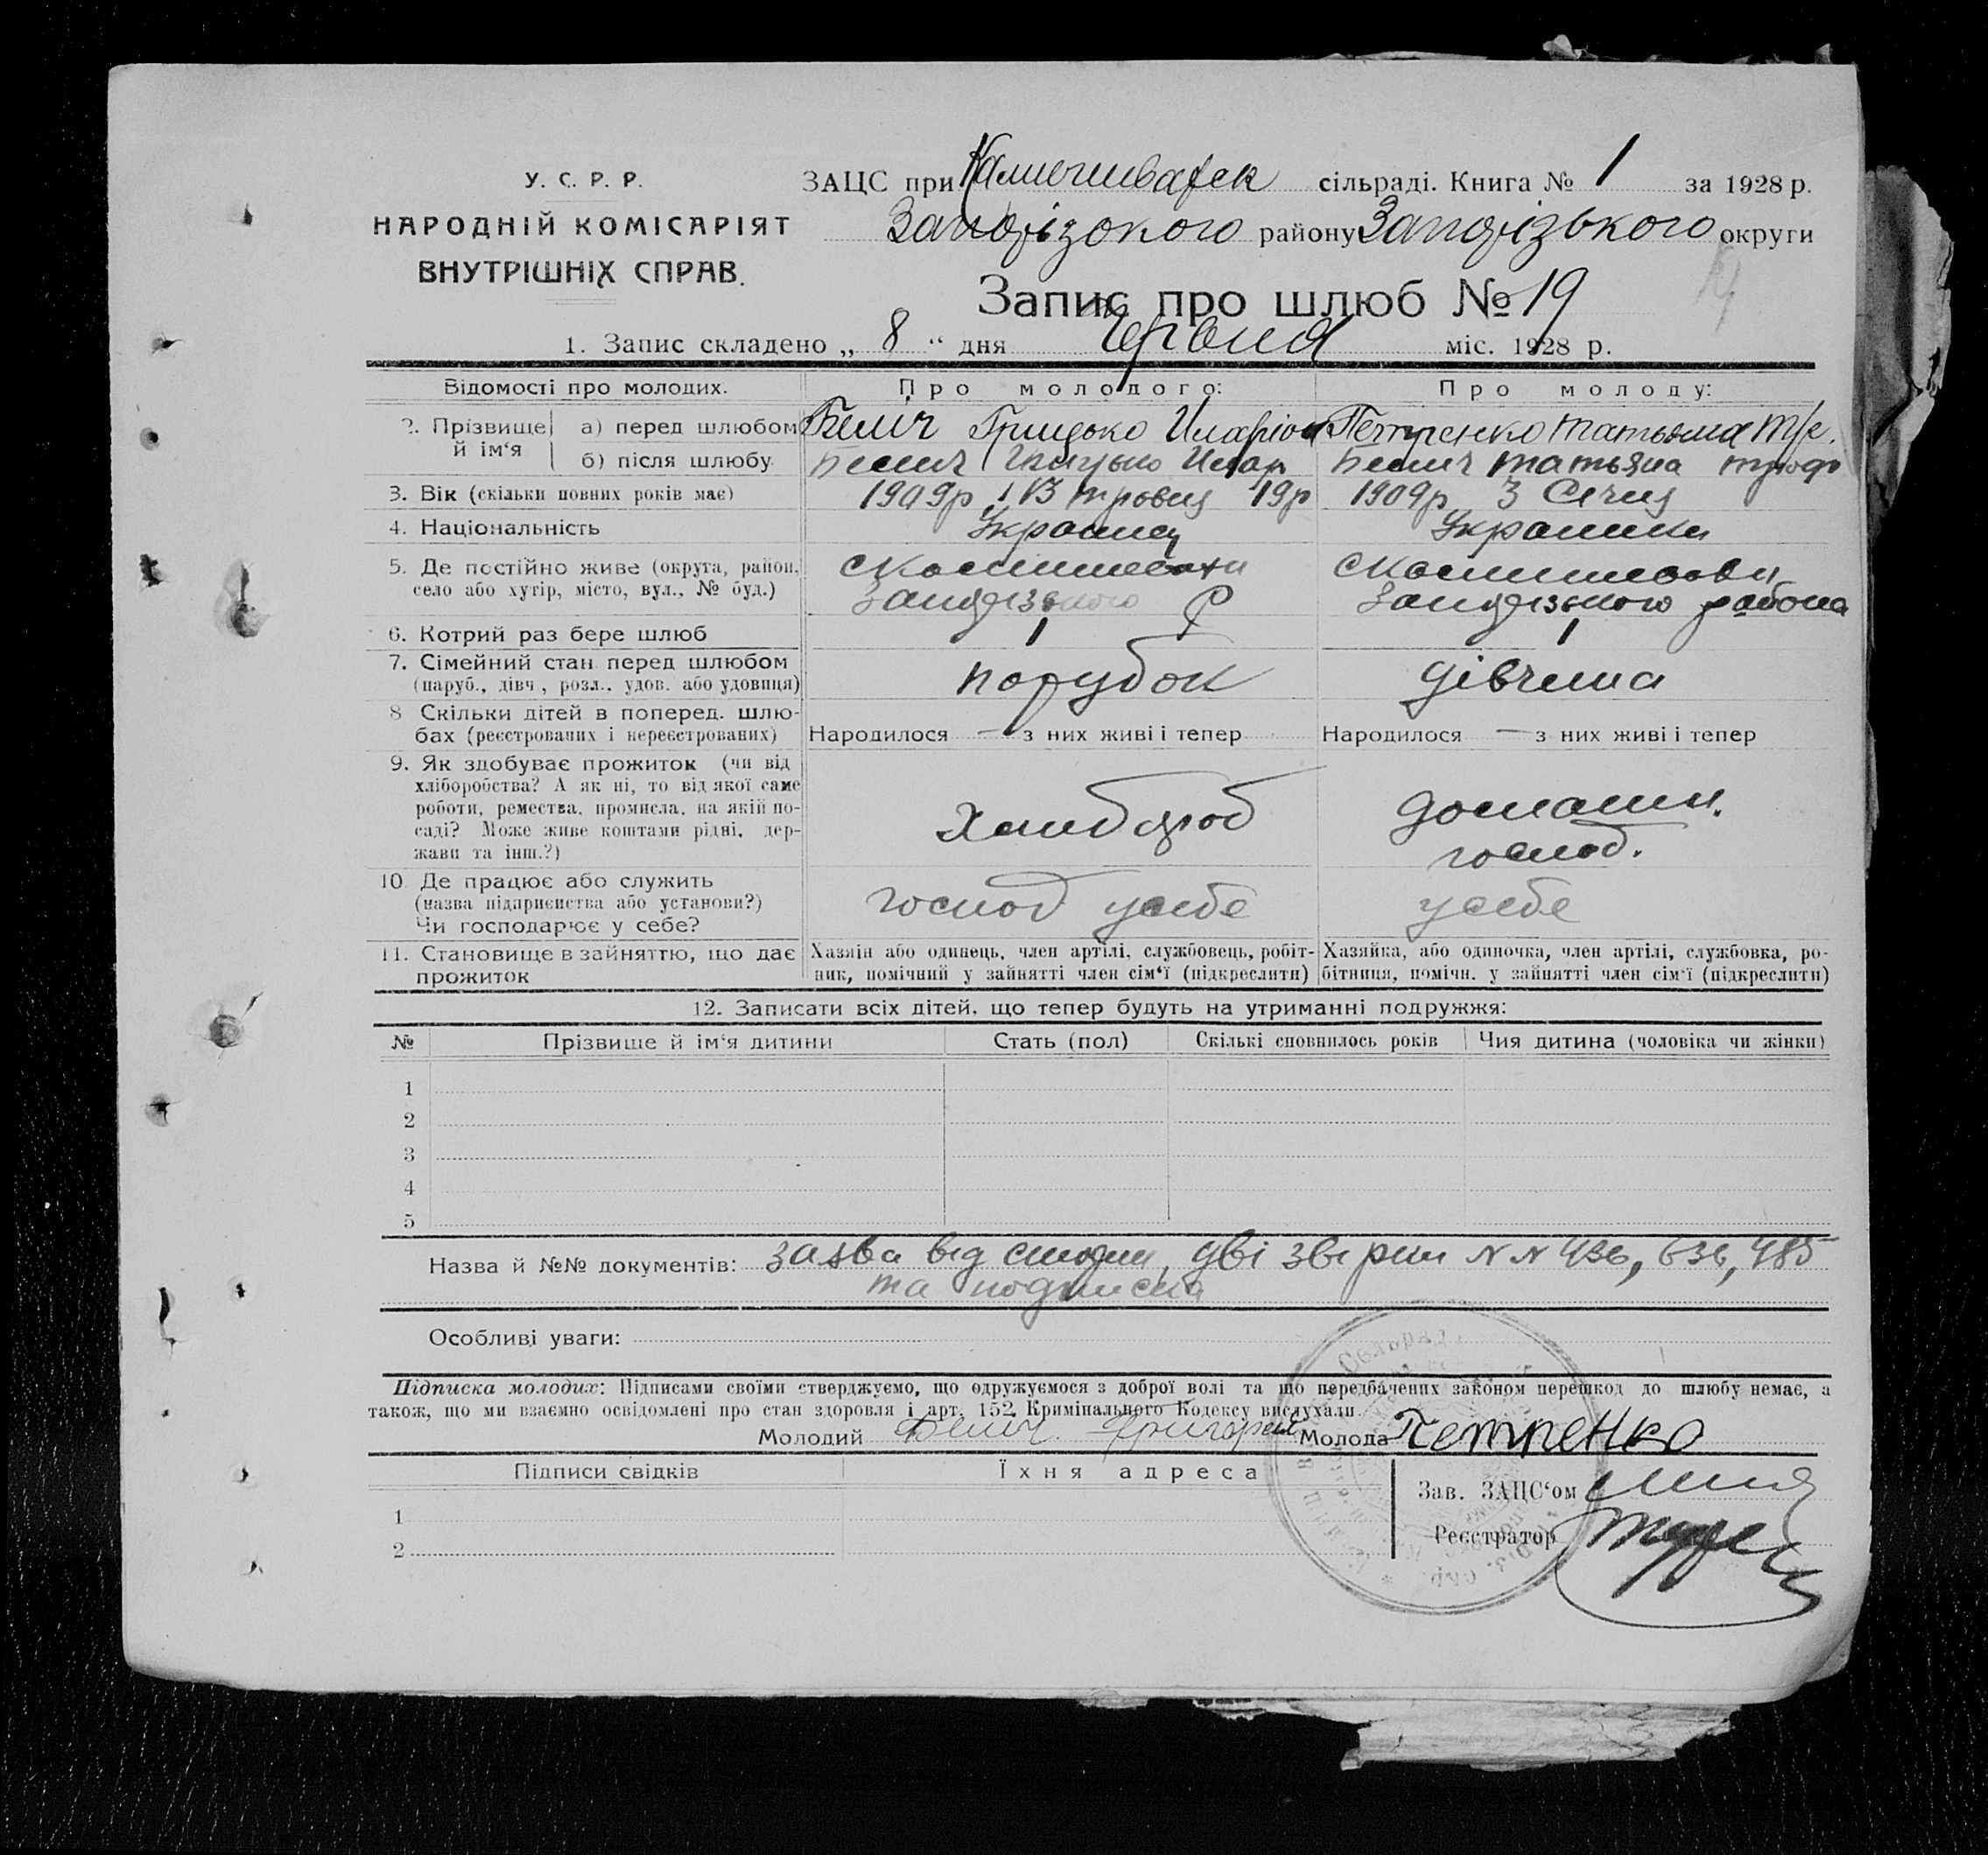 У. С. Р. Р.
НАРОДНІЙ КОМІСАРІЯТ
ВНУТРІШНІХ СПРАВ.
ЗАЦС при сільраді. Книга № 1 за 1928 р.
Запорізького району Запорізького округи
Запис про шлюб № 19
1. Запис складено „ 8 “ дня Червня міс. 1928 р.
Відомості про молодих. Про молодого: Про молоду:
2. Прізвище й ім‘я
а) перед шлюбом Белич Грицько Иларіон Петренко Татьяна
б) після шлюбу Белич Грицько Илар Белич Татьяна
3. Вік (скільки повних років має) 1909р 19р 1909р 3 Січня
4. Національність Украинец Украинка
5. Де постійно живе (округа, район,
село або хутір, місто, вул., № буд.)
Запорізького Р Запорізького района
6. Котрий раз бере шлюб 1 1
7. Сімейний стан перед шлюбом
(паруб., дівч., розл., удов. або удовиця)
порубок дівчина
8 Скільки дітей в поперед. шлю-
бах (реєстрованих і нереєстрованих)
Народилося — з них живі і тепер Народилося — з них живі і тепер
9. Як здобуває прожиток (чи від
хліборобства? А як ні, то від якої саме
роботи, ремества, промисла, на якій по-
саді? Може живе коштами рідні, дер-
жави та інш.?)
Хлибороб
домашн.
господ.
10 Де працює або служить
(назва підприємства або установи?)
Чи господарює у себе?
господ усебе усебе
11. Становище в зайняттю, що дає
прожиток
Хазяїн або одинець, член артілі, службовець, робіт-
ник, помічний у зайнятті член сім‘ї (підкреслити)
Хазяйка, або одиночка, член артілі, службовка, ро-
бітниця, помічн. у зайнятті член сім‘ї (підкреслити)
12. Записати всіх дітей, що тепер будуть на утриманні подружжя:
№ Прізвище й ім‘я дитини Стать (пол) Скількі сповнилось років Чия дитина (чоловіка чи жінки)
1
2
3
4
5
Назва й №№ документів: заява від дві NN 436, 636, 485
та подписка
Особливі уваги:
Підписка молодих: Підписами своїми стверджуємо, що одружуємося з доброї волі та що передбачених законом перешкод до шлюбу немає, а
також, що ми взаємно освідомлені про стан здоровля і арт. 152 Кримінального Кодексу вислухали.
Молодий Белич Григорий Молода Петренко
Підписи свідків Їхня адреса
Зав. ЗАЦС‘ом
1
Реєстратор
2